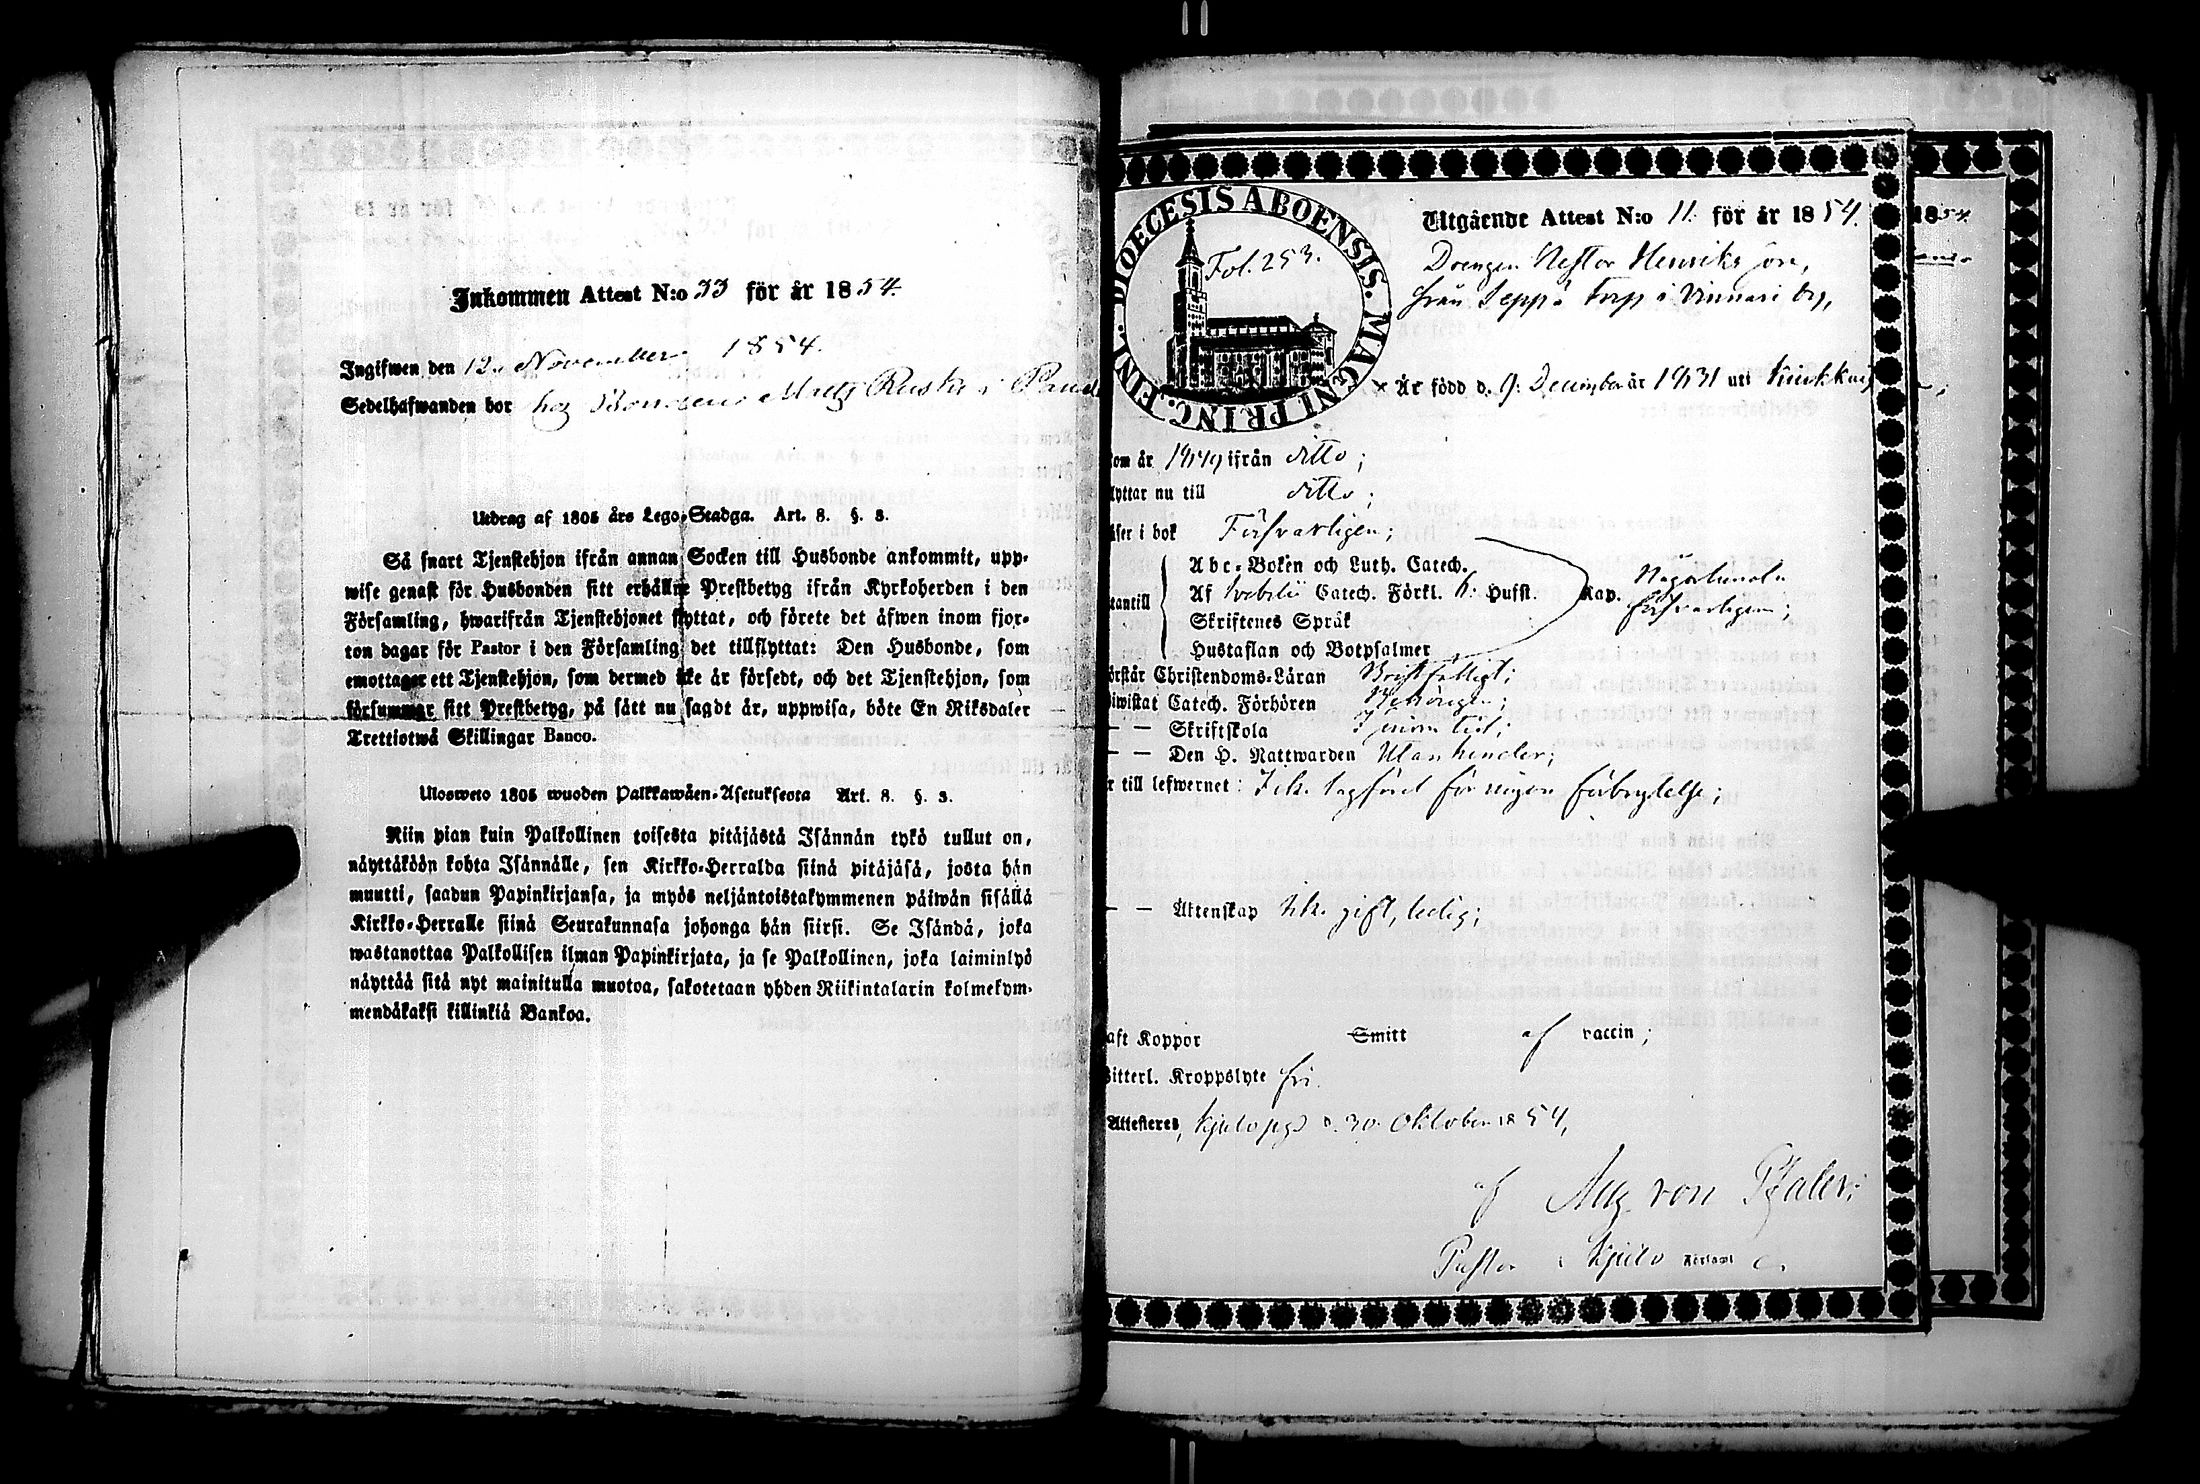 Inkommen Attest N:o 33 för år 1854.
Ingifwen den 12. November 1854.
Sedelhafwanden bor hos Bonden Matts Ruska i
Utdrag af 1805 års Lego-Stadga. Art. 8. §. 8.
Så snart Tjenstehjon ifrån annan Socken till Husbonde ankommit, upp-
wise genast för Husbonden sitt erhållne Prestbetyg ifrån Kyrkoherden i den
Församling, hwarifrån Tjenstehjonet flyttat, och förete det äfwen inom fjor-
ton dagar för Pastor i den Församling det tillflyttat: Den Husbonde, som
emottager ett Tjenstehjon, som dermed icke är försedt, och det Tjenstehjon, som
försummar sitt Prestbetyg, på sätt nu sagdt är, uppwisa, böte En Riksdaler
Trettiotwå Skillingar Banco.
Ulosweto 1805 wuoden Palkkawäen-Asetuksesta Art. 8. §. 3.
Niin pian kuin Palkollinen toisesta pitäjästä Isännän tykö tullut on,
näyttäköön kohta Isännälle, sen Kirkko-Herralda siinä pitäjäsä, josta hän
muutti, saadun Papinkirjansa, ja myös neljäntoistakymmenen päiwän sisällä
Kirkko-Herralle siinä Seurakunnasa johonga hän siirsi. Se Isändä, joka
wastanottaa Palkollisen ilman Papinkirjata, ja se Palkollinen, joka laiminlyö
näyttää sitä nyt mainitulla muotoa, sakotetaan yhden Riikintalarin kolmekym-
mendäkaksi killinkiä Bankoa.
DIOECESIS ABOENSIS. MAGNI PRINC. FINL.
Fol. 253.
Utgående Attest N:o 11. för år 1854.
Drengen Nestor Henriksson,
från Seppä torp i Vinnari by,
Är född d. 9. December år 1831 uti
om år 1849 ifrån ditto;
lyttar nu till ditto;
äser i bok Försvarligen;
Abc-Boken och Luth. Catech.
tantill Af Svebelii Catech. Förkl. Hufst. Kap. Någorlunda
försvarligen;
Skriftenes Språk
Hustaflan och Botpsalmer
örstår Christendoms-Läran Bristfälligt;
iwistat Catech. Förhören Behörigen;
— — Skriftskola I sinom tid;
— — Den H. Nattwarden Utan hinder;
r till lefwernet: Icke lagförd för någon förbrytelse;
— — Äktenskap Icke gift, ledig;
aft Koppor Smitt af vaccin;
itterl. Kroppslyte fri.
Attesteres, Kjulo pgd d. 30. Oktober 1854,
af Aug. von Pfaler;
Pastor i Kjulo Församl
1854.